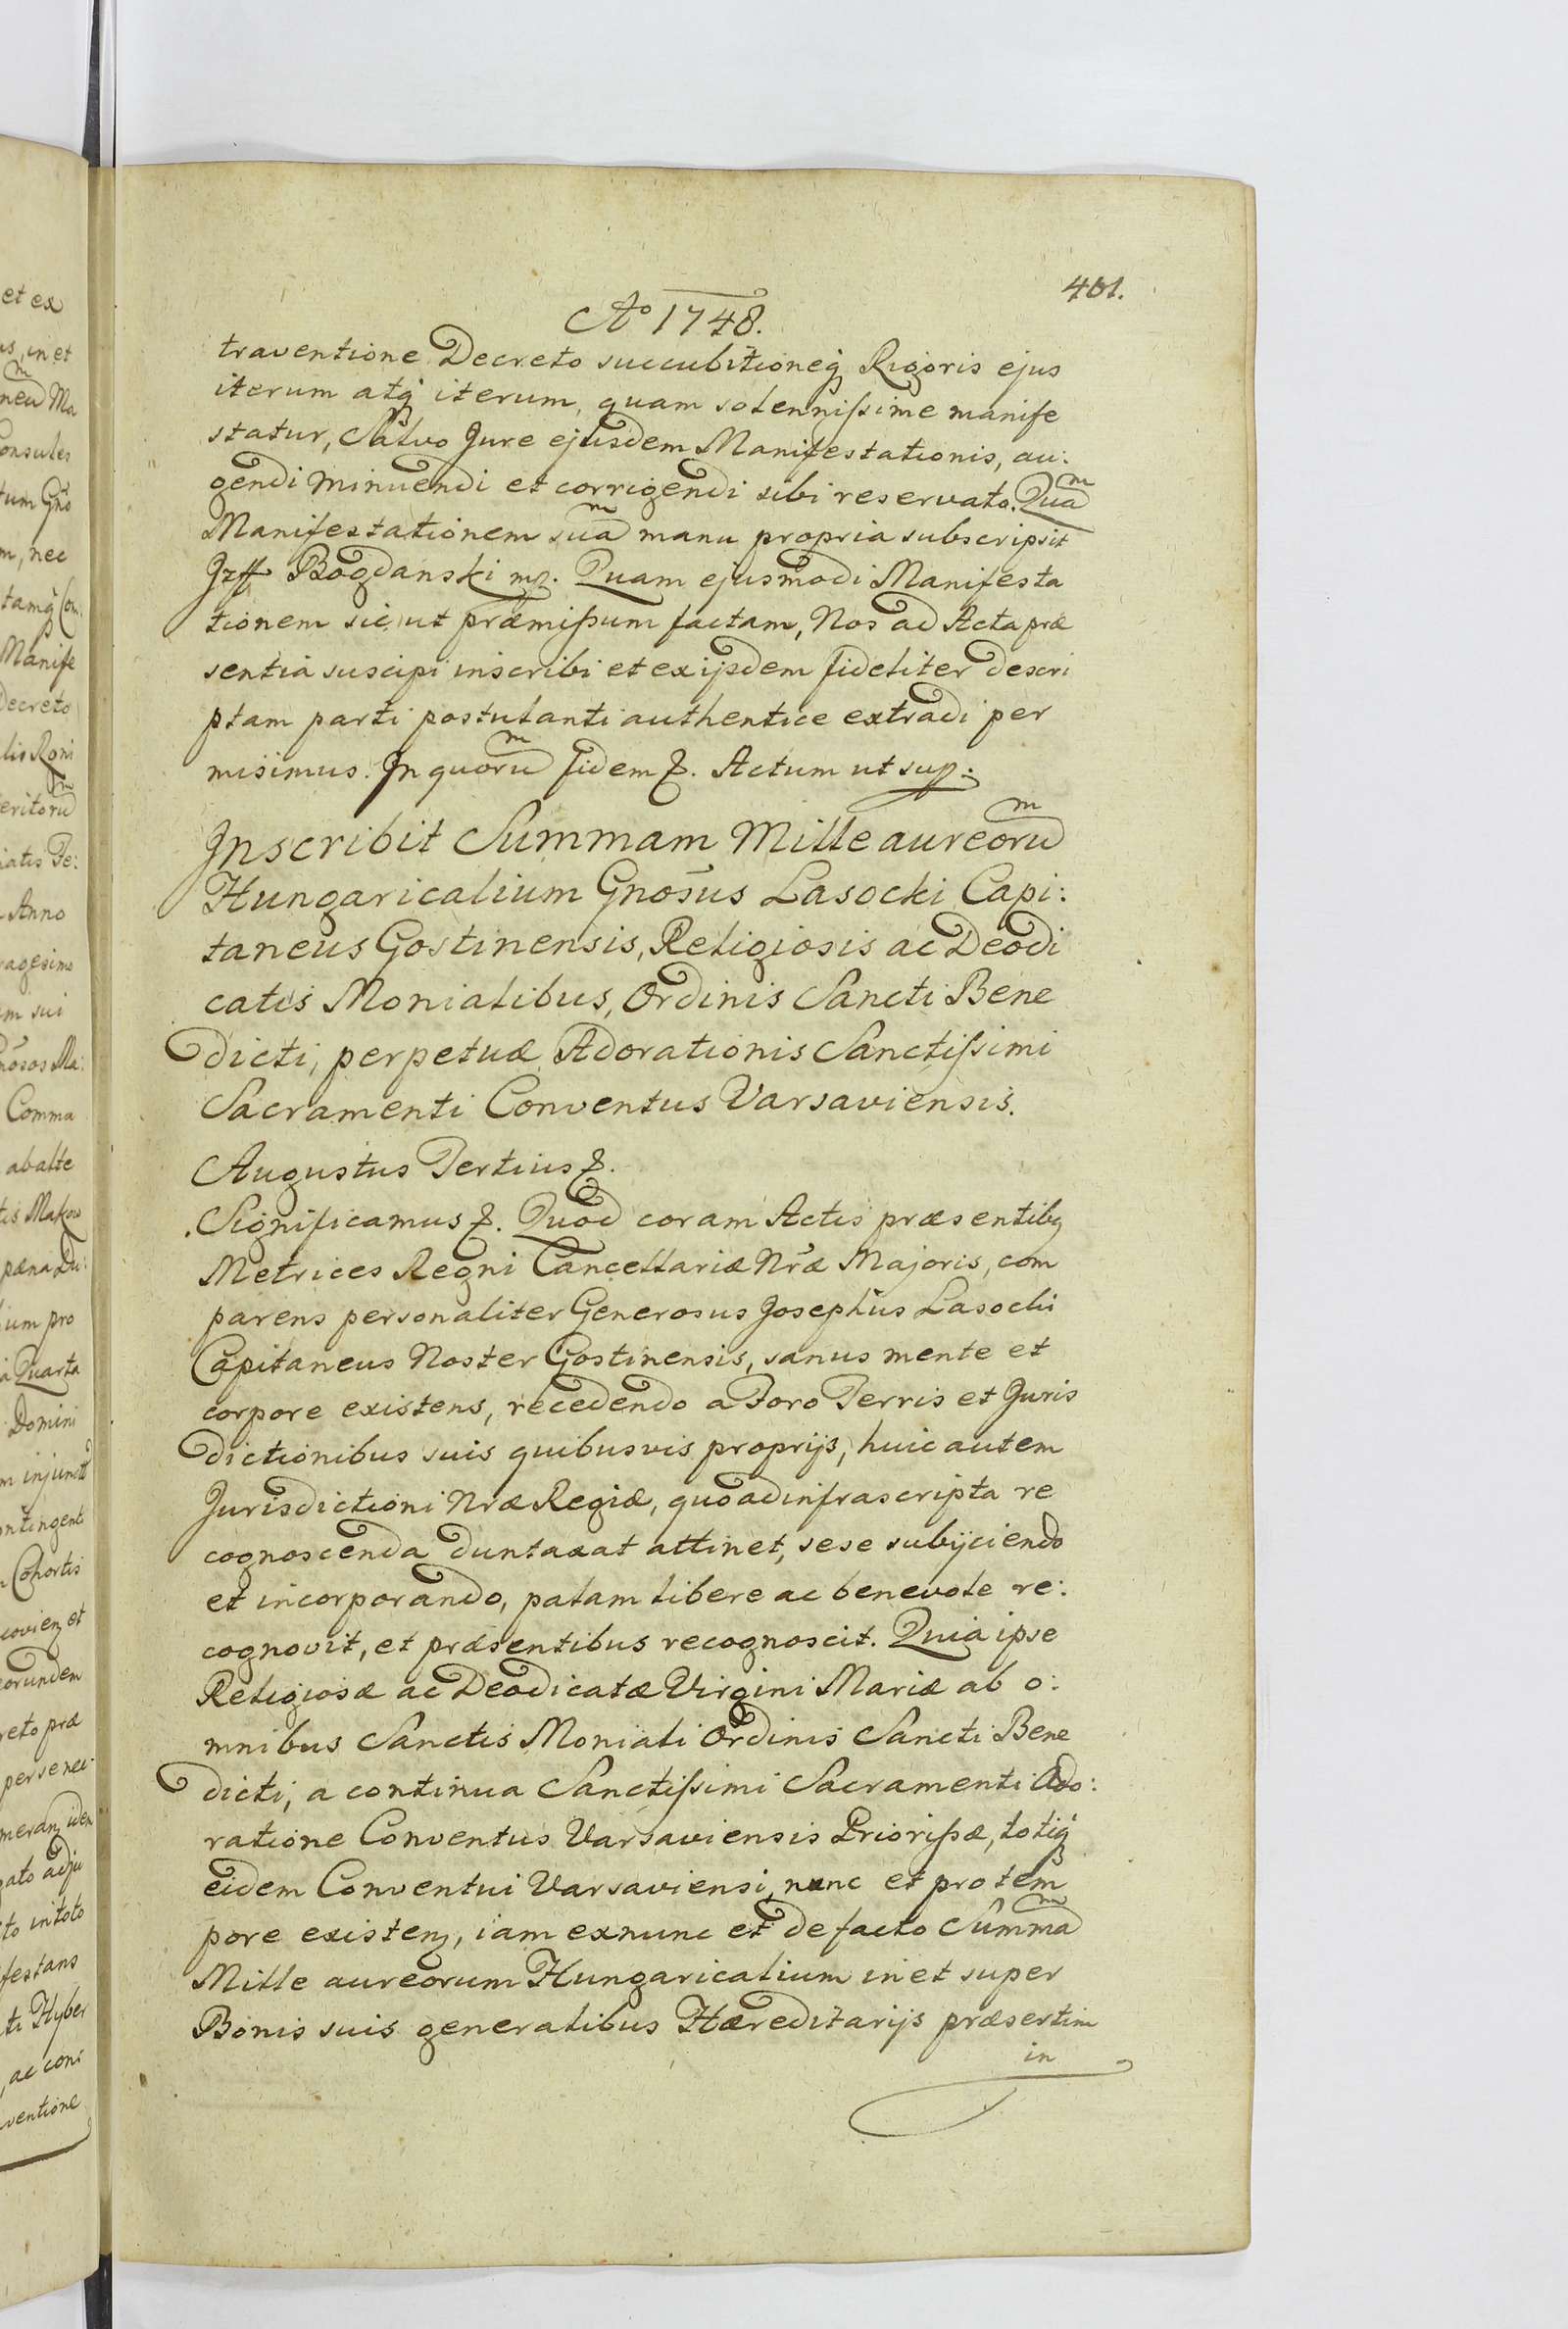 401.
Aº 1748.
traventione Decreto succubitioneq3 Rigoris ejus
iterum atq3 iterum, quam solennissime manife
statur, Salvo Jure ejusdem Manifestationis, au:
gendi minuendi et corrigendi sibi reservato. Quaᵐ
Manifestationem suaᵐ manu propria subscripsit
Bogdanski mp. Quam ejusmodi Manifesta
tionem sic, ut præmissum factam, Nos ad Acta præ
sentia suscipi inscribi et ex ijsdem fideliter descri
ptam parti postulanti authentice extradi per
misimus. In quoruᵐ fidem &. Actum ut sup:
Inscribit Summam Mille aureoruᵐ
Hungaricalium Gnosus Lasocki Capi:
taneus Gostinensis, Religiosis ac Deodi
catis Monialibus, Ordinis Sancti Bene
dicti, perpetuæ Adorationis Sanctissimi
Sacramenti Conventus Varsaviensis.
Augustus Tertius &.
Significamus &. Quod coram Actis præsentib9
Metrices Regni Cancellariæ Nræ Majoris, com
parens personaliter Generosus Josephus Lasocki
Capitaneus Noster Gostinensis, sanus mente et
corpore existens, recedendo a Foro Terris et Juris
dictionibus suis quibusvis proprijs, huic autem
Jurisdictioni Nræ Regiæ, quoad infrascripta re
cognoscenda duntaxat attinet, sese subijciendo
et incorporando, palam libere ac benevole re:
cognovit, et præsentibus recognoscit. Quia ipse
Religiosæ ac Deodicatæ Virgini Mariæ ab o:
mnibus Sanctis Moniali Ordinis Sancti Bene
dicti, a continua Sanctissimi Sacramenti Ado:
ratione Conventus Varsaviensis Priorissæ, totiq3
eidem Conventui Varsaviensi, nunc et pro tem
pore existen, iam exnunc et de facto Summaᵐ
Mille aureorum Hungaricalium in et super
Bonis suis generalibus Hæreditarijs præsertim
in